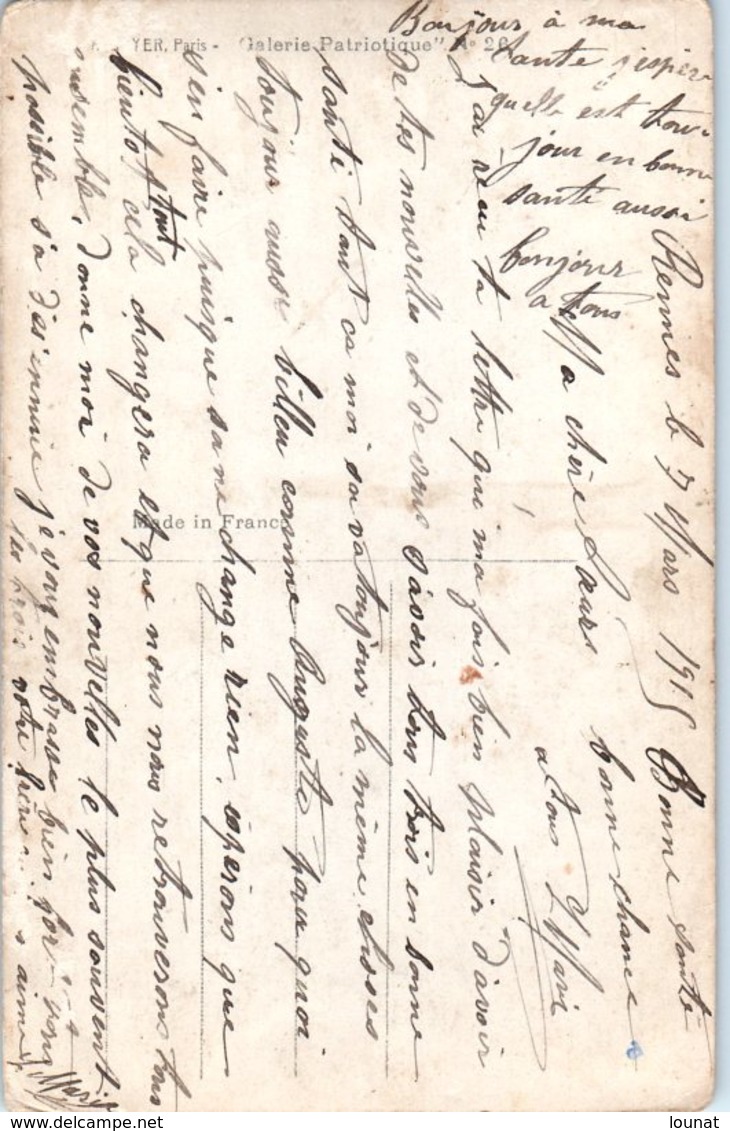 YER, Paris - "Galerie Patriotique" N° 26
Made in France
Rennes le 7 Mars 1915
Bonne santé
bonne chance
a tous Marie
Ma chère Sœurs
J'ai reçu ta lettre qui ma fais bien plaisir d'avoir
de tes nouvelles et de vous savoir tous trois en bonne
santé tant ca moi sa va toujour la même chosses
toujour aussi billeu comme Auguste pour quoi
s'en faire puisque sa ne change rien, esperons que
bientot tout cela changera et que nous nous retrouverons tous
ensemble, donne moi de vos nouvelles le plus souvent
possible s'a désennuie je vous embrasse bien fort
les trois votre
aime
Marie
Bonjour à ma
tante j'espère
quelle est tou-
jour en bonne
santé aussi
bonjour
a tous
lounat